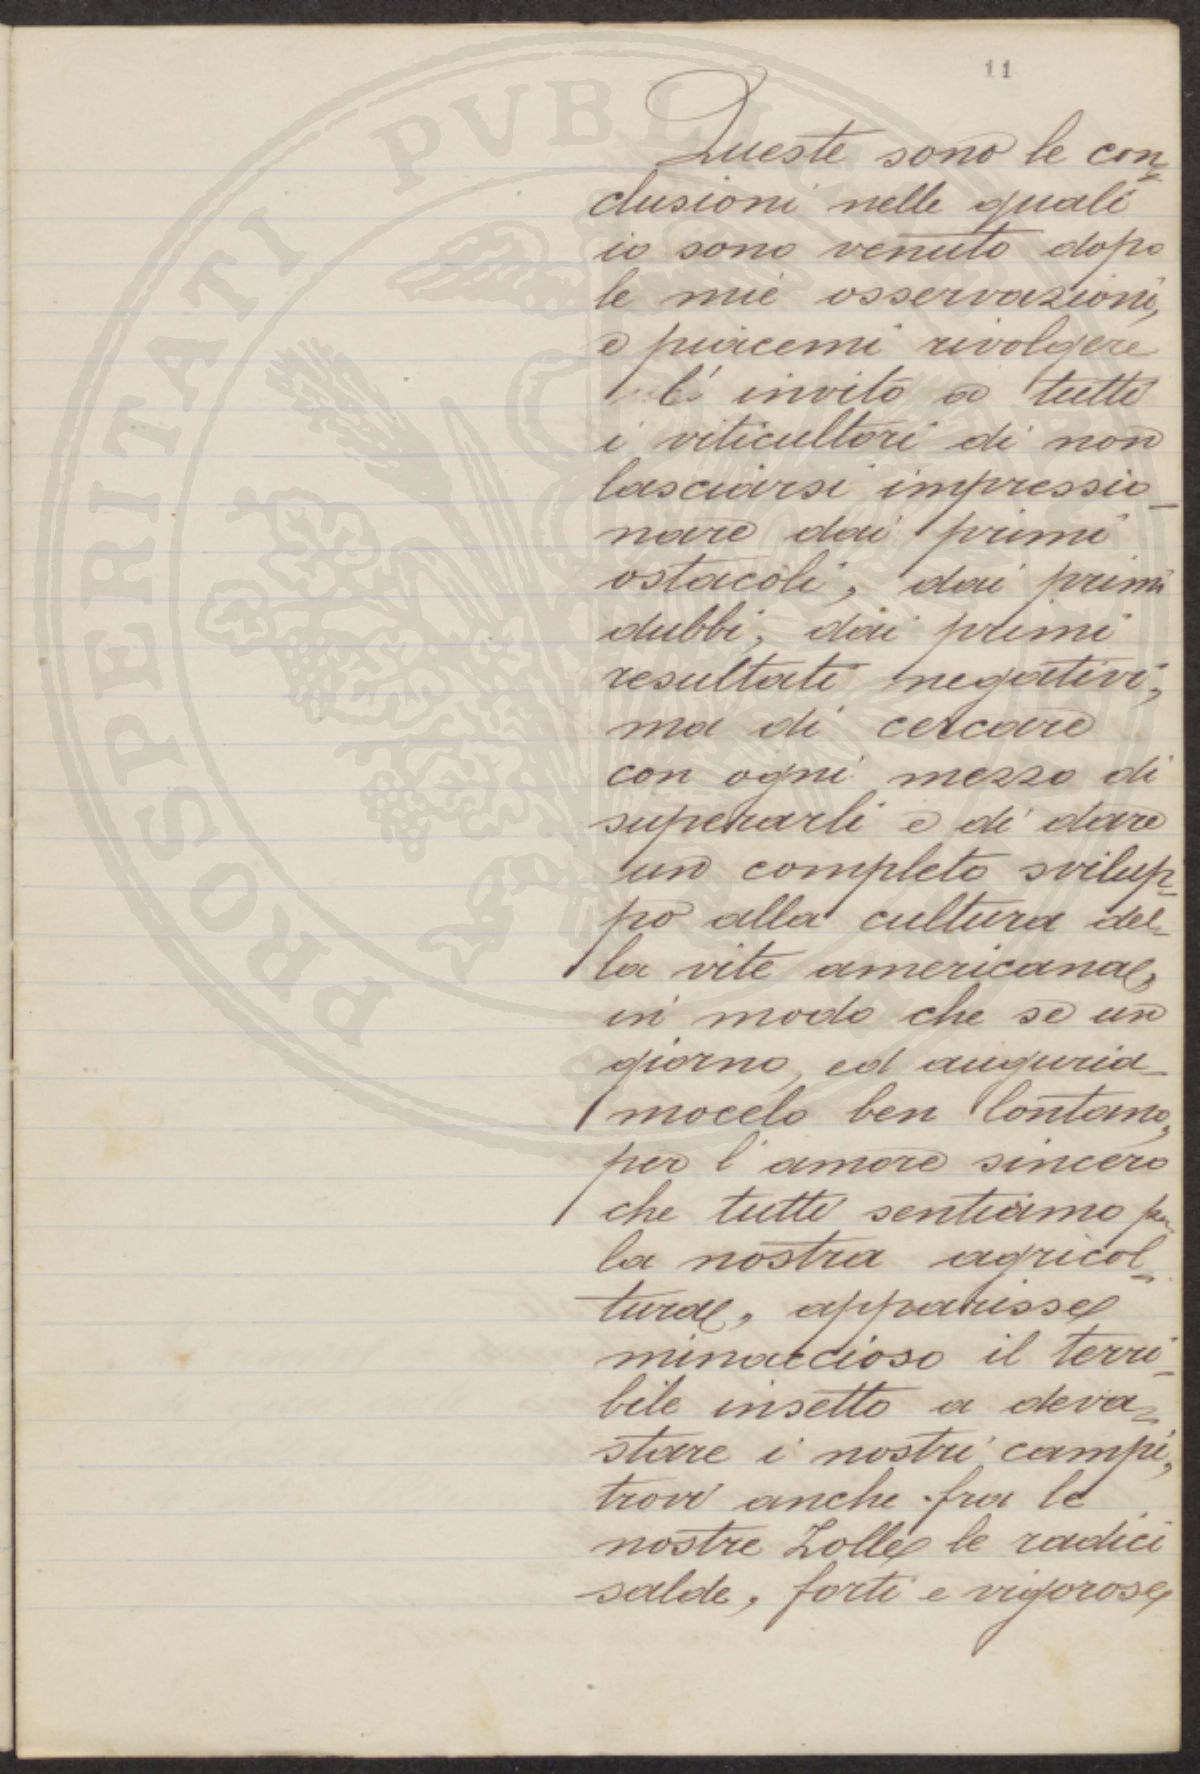 11
Queste sono le con=
clusioni nelle quali
io sono venuto dopo
le mie osservazioni,
e piacemi rivolgere
l'invito a tutti
i viticultori di non
lasciarsi impressio_
nare dai primi
ostacoli, dai primi
dubbi, dai primi
resultati negativi,
ma di cercare
con ogni mezzo di
superarli e di dare
un completo svilup=
po alla cultura del_
la vite americana,
in modo che se un
giorno, ed auguria_
mocelo ben lontano,
per l'amore sincero
che tutti sentiamo per
la nostra agricol=
tura, apparisse
minaccioso il terri=
bile insetto a deva=
stare i nostri campi,
trovi anche fra le
nostre Zolle le radici
salde, forti e vigorose
PROSPERITATI PVBLIC